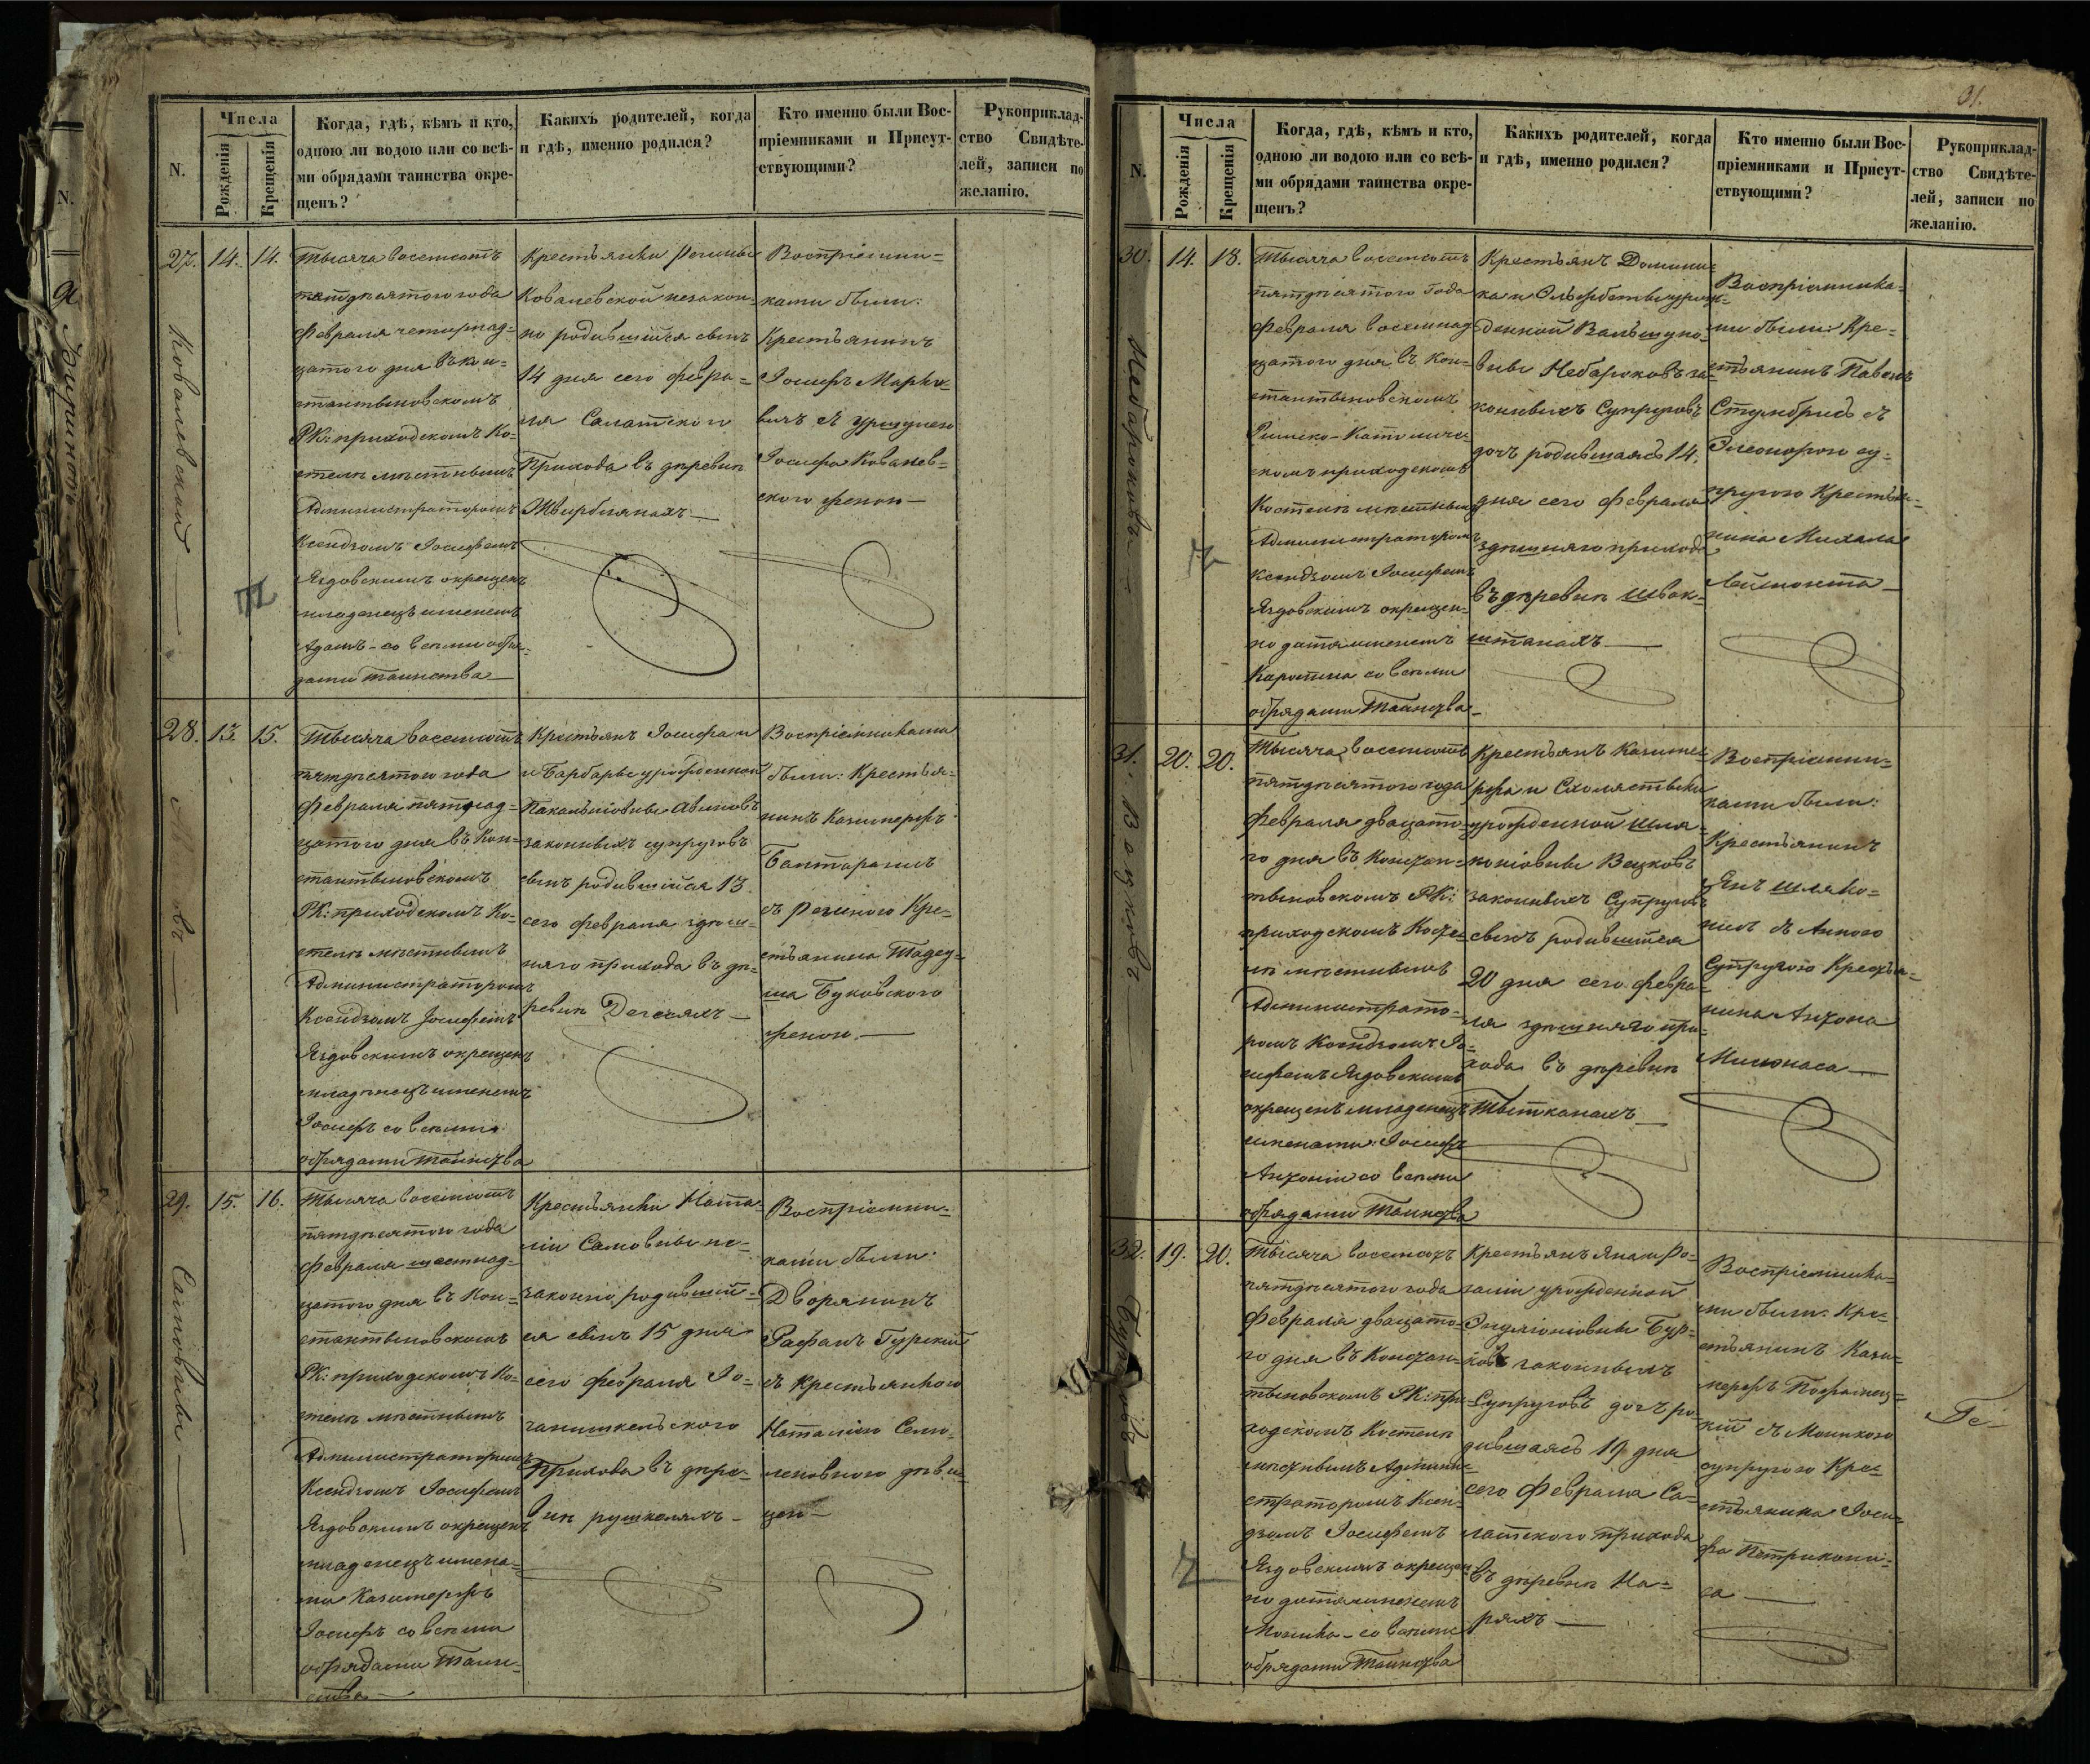 N.
Числа
Рожденія
Крещенія
Когда, гдѣ, кѣмъ и кто,
одною ли водою или со всѣ-
ми обрядами таинства окре-
щенъ?
Какихъ родителей, когда
и гдѣ, именно родился?
Кто именно были Вос-
пріемниками и Присут-
ствующими?
Рукоприклад-
ство Свидѣте-
лей, записи по
желанію.
27. 14. 14.
Ковалевский
Тысяча восемьсотъ
пятдѣсятого года
Февраля четырнад-
цатого дня въ Кон-
стантыновскомъ
РК: приходскомъ Ко-
стелѣ мѣстнымъ
Администраторомъ
Ксендзомъ Іосифомъ
Яздовскимъ окрещенъ
младенецъ именемъ
Адамъ - со всѣми обря-
дами таинства
Крестьянки Регины
Ковалевской незакон-
но родившійся сынъ
14 дня сего февра-
ля Салатского
Прихода въ дѣревнѣ
Жвирблянахъ
Воспріемни-
ками были:
Крестьянинъ
Іосифъ Марке-
вичъ съ Уршулею
Іосифа Ковалев-
ского женою
28. 13. 15.
Тысяча восемьсотъ
пятдѣсятого года
Февраля пятнад-
цатого дня въ Кон-
стантыновскомъ
РК: приходскомъ Ко-
стелѣ мѣстнымъ
Администраторомъ
Ксендзомъ Іосифомъ
Яздовскимъ окрещенъ
младѣнецъ именемъ
Іосифъ со всѣми
обрядами таинства
Крестьянъ Іосифа и
и Барбары урожденной
законныхъ супруговъ
сынъ родившійся 13
сего февраля здѣш-
няго прихода въ дѣ-
ревнѣ
Воспріемниками
были: Крестья-
нинъ Казимержъ
съ Региною Кре-
стьянина Тадеу-
ша Буковского
женою
29. 15. 16.
Самовичъ
Тысяча восемьсотъ
пятдѣсятого года
Февраля шестнад-
цатого дня въ Кон-
стантыновскомъ
РК: приходскомъ Ко-
стелѣ мѣстнымъ
Администраторомъ
Ксендзомъ Іосифомъ
Яздовскимъ окрещенъ
младенецъ имена-
ми Казимержъ
Іосифъ со всѣми
обрядами Таин-
ства
Крестьянки Ната-
ліи не-
законно родивший-
ся сынъ 15 дня
сего февраля Іо-
ганишкельского
Прихода въ дѣре-
внѣ
Воспріемни-
ками были:
Дворянинъ
Рафалъ Гурский
съ крестьянкою
Наталіею
дѣви-
цею
31.
N.
Числа
Рожденія
Крещенія
Когда, гдѣ, кѣмъ и кто,
одною ли водою или со всѣ-
ми обрядами таинства окре-
щенъ?
Какихъ родителей, когда
и гдѣ, именно родился?
Кто именно были Вос-
пріемниками и Присут-
ствующими?
Рукоприклад-
ство Свидѣте-
лей, записи по
желанію.
30. 14. 18.
Небароковъ
Тысяча восемьсотъ
пятдѣсятого года
Февраля восемнад-
цатого дня въ Кон-
стантыновскомъ
Римско-Католиче-
скомъ приходскомъ
Костелѣ мѣстнымъ
Администраторомъ
Ксендзомъ Іосифомъ
Яздовскимъ окреще-
но дитя именемъ
Каролина со всѣми
обрядами Таинства
Крестьянъ Домини-
ка и Эльжбеты урож-
денной
Небароковъ за-
конныхъ Супруговъ
дочъ родившаясъ 14.
дня сего Февраля
здѣшняго прихода
въ дѣревнѣ Швак-
штанахъ
Воспріемника-
ми были: Кре-
стьянинъ Павелъ
Стумбрисъ съ
Элеонорою су-
пругою Крестья-
нина Михала
31. 20. 20.
Вецковъ
Тысяча восемьсотъ
пятдѣсятого года
Февраля двацато-
го дня въ Констан-
тыновскомъ РК:
приходскомъ Косте-
лѣ мѣстнымъ
Администрато-
ромъ Ксендзомъ Іо-
сифомъ Яздовскимъ
окрещенъ младенецъ
именами: Іосифъ
Антоній со всѣми
обрядами Таинства
Крестьянъ Казиме-
ржа и Схолястыки
урожденной Шля-
Вецковъ
законныхъ Супруговъ
сынъ родившійся
20 дня сего февра-
ля здѣшняго при-
хода въ дѣревнѣ
Тытканахъ
Воспріемни-
ками были:
Крестьянинъ
Янъ
съ Анною
Супругою Крестья-
нина Антона
Милюнаса
32. 19. 20.
Тысяча восемьсотъ
пятдѣсятого года
Февраля двацато-
го дня въ Констан-
тыновскомъ РК: при-
ходскомъ Костелѣ
мѣстнымъ Админи-
страторомъ Ксен-
дзомъ Іосифомъ
Яздовскимъ окреще-
но дитя именемъ
Моника - со всѣми
обрядами Таинства
Крестьянъ Яна и Ро-
заліи урожденной
законныхъ
Супруговъ дочъ ро-
дившаясъ 19 дня
сего Февраля Са-
латского прихода
въ дѣревнѣ
Воспріемника-
ми были: Кре-
стьянинъ Кази-
мержъ
съ Моникою
супругою Кре-
стьянина Іоси-
фа